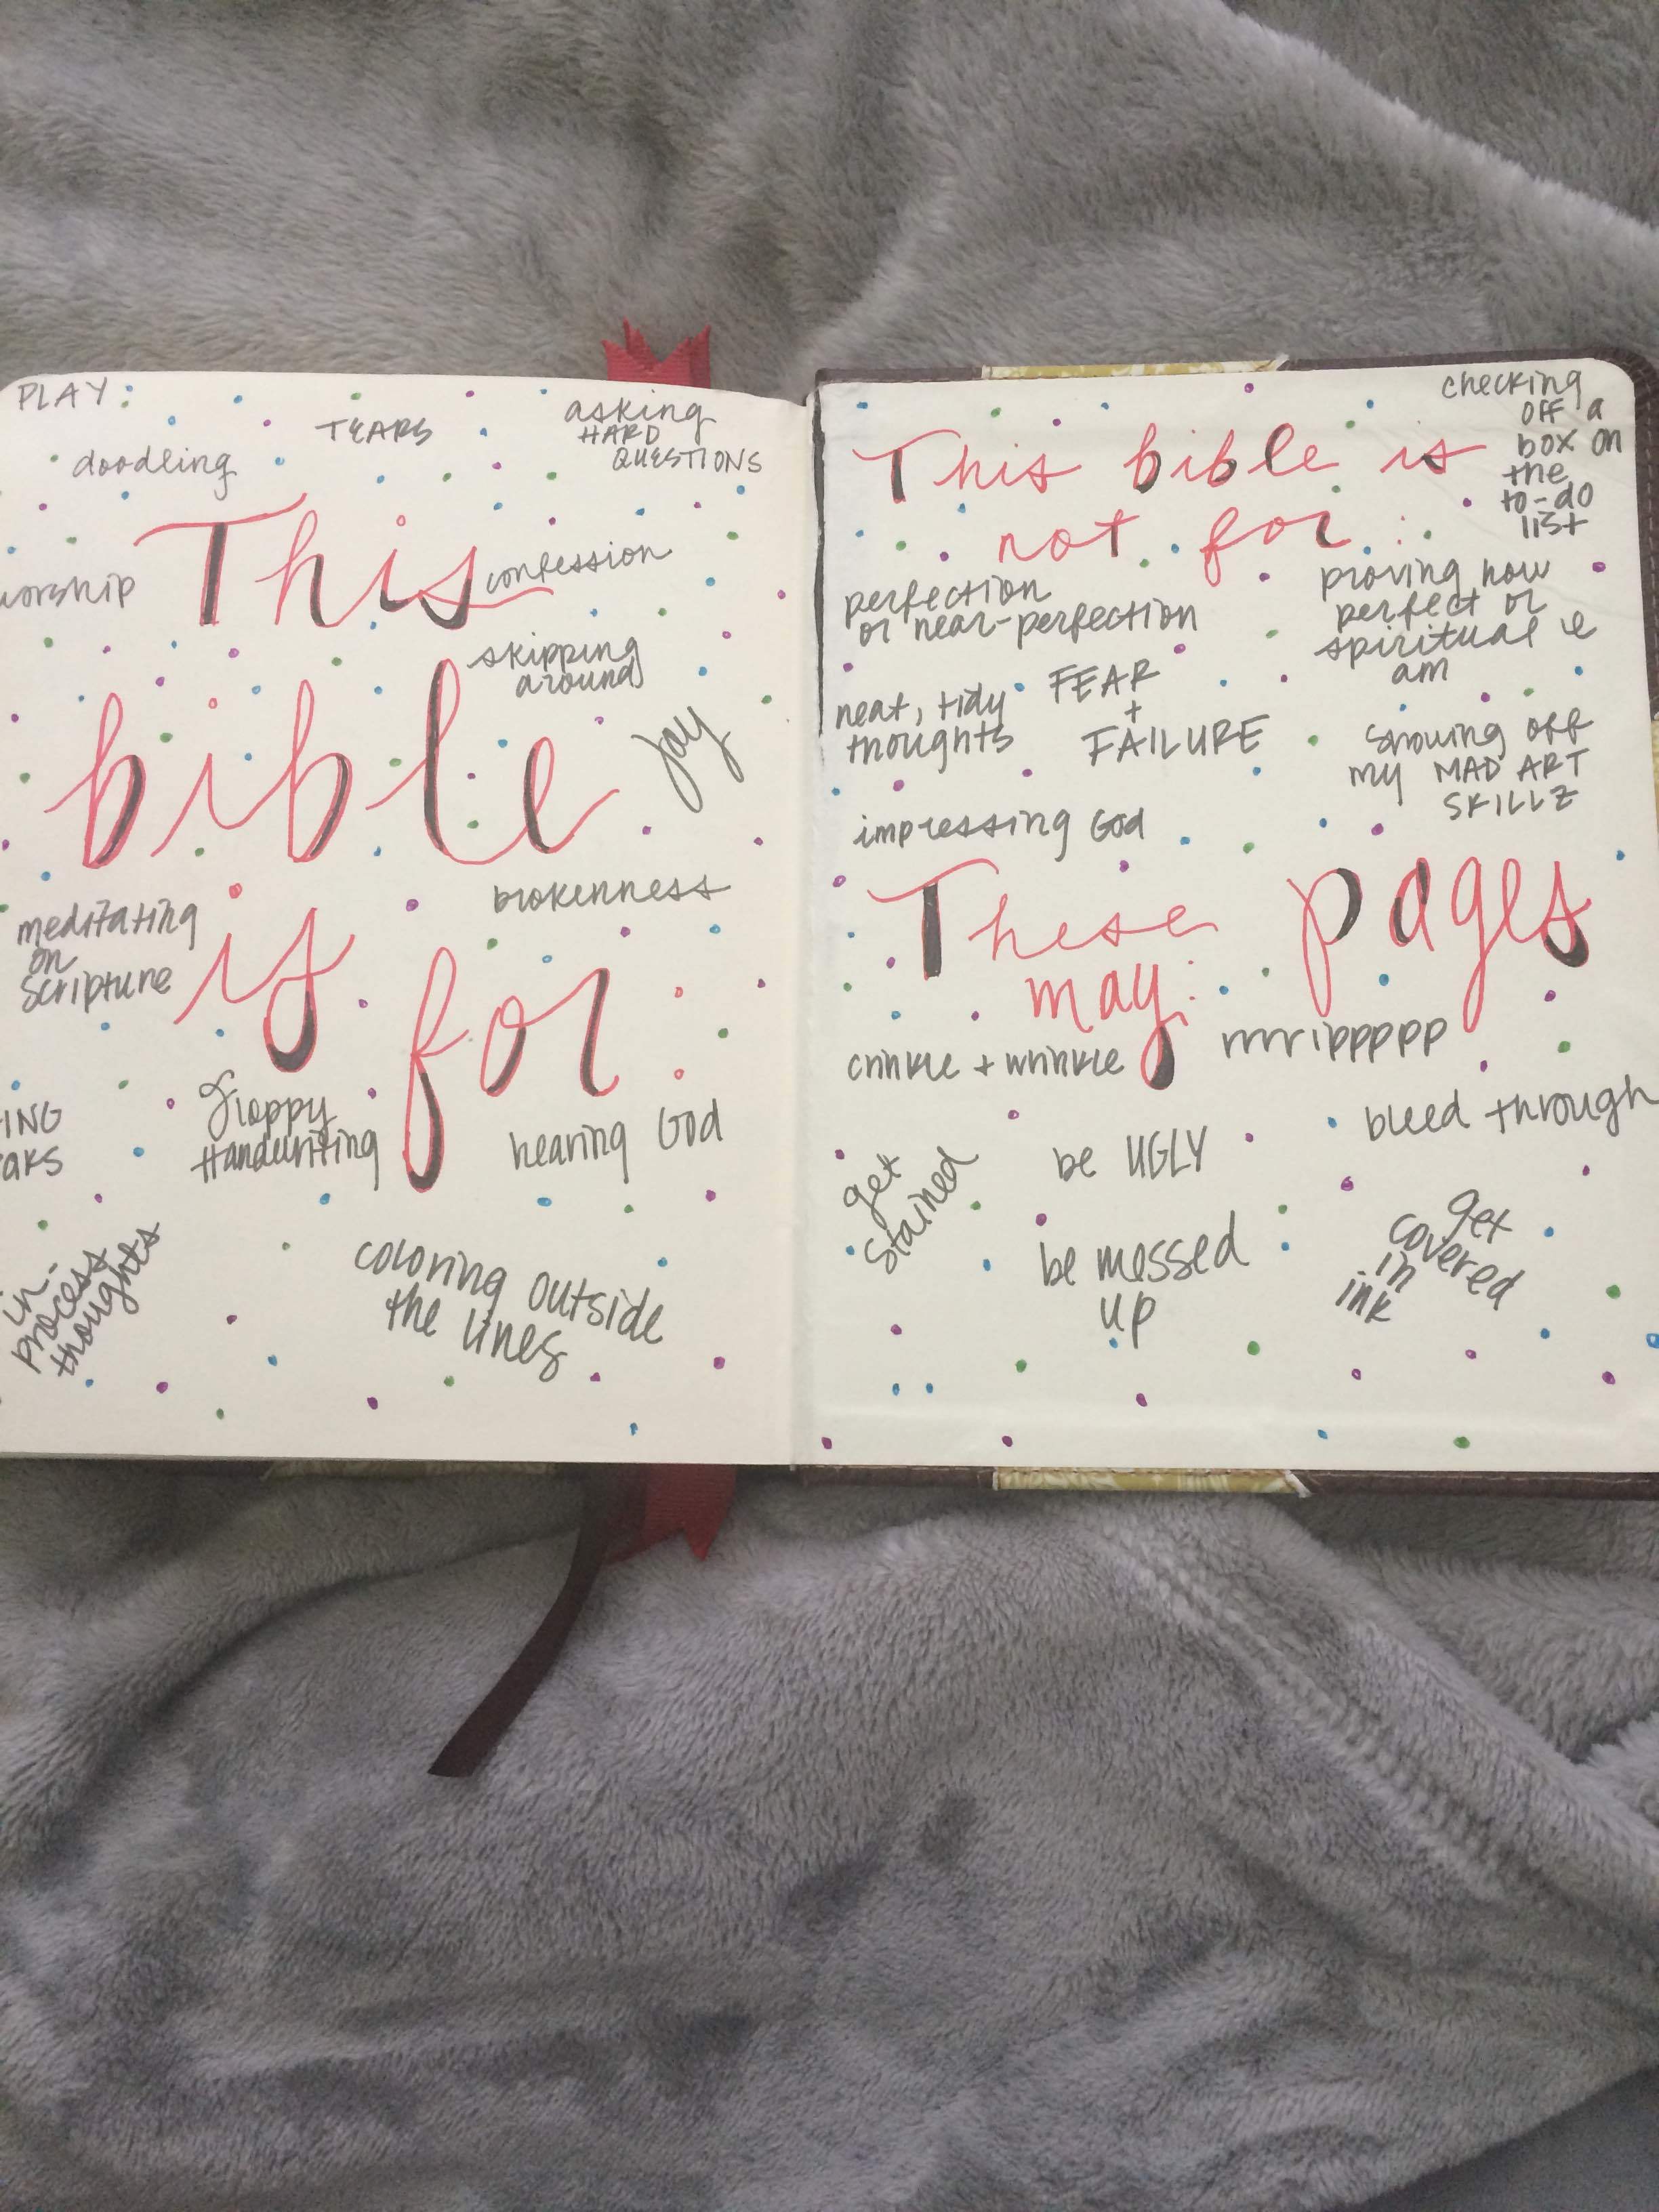 PLAY:
TEARS
asking
HARD
QUESTIONS
doodling
This
worship
confession
skipping
around
bible
joy
brokenness
meditating
on
scripture
is
for:
ING
aks
sloppy
Handwriting
hearing God
in-
process
thoughts
coloring outside
the lines
checking
off a
box on
the
to-do
list
This bible is
not for:
perfection
or near-perfection
proving how
perfect or
spiritual
am
neat, tidy
thoughts
FEAR
+
FAILURE
showing off
my MAD ART
SKILLZ
impressing God
These pages
may:
crinkle + wrinkle
rrrrippppp
bleed through
get
stained
be UGLY
be messed
up
get
covered
in
ink